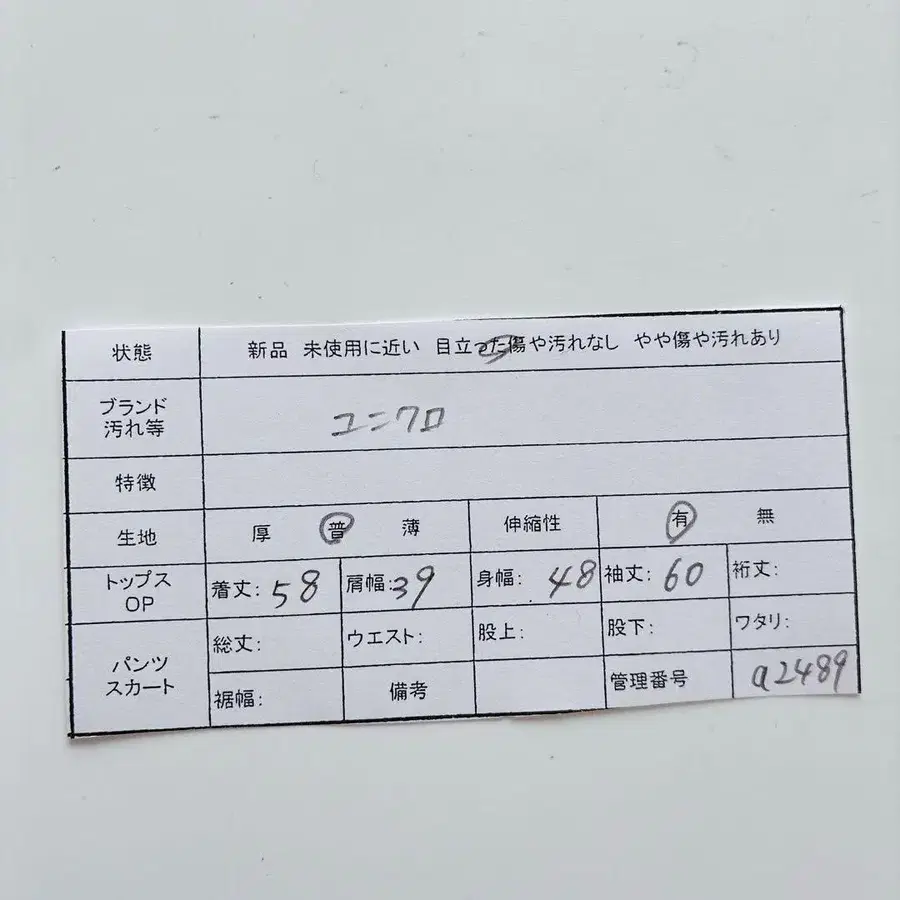 状態 新品 未使用に近い 目立った傷や汚れなし やや傷や汚れあり
ブランド
汚れ等
ユニクロ
特徴
生地 厚 普 薄 伸縮性 有 無
トップス
OP
着丈:58 肩幅:39 身幅:48 袖丈:60 裄丈:
パンツ
スカート
総丈: ウエスト: 股上: 股下: ワタリ:
裾幅: 備考 管理番号 a2489